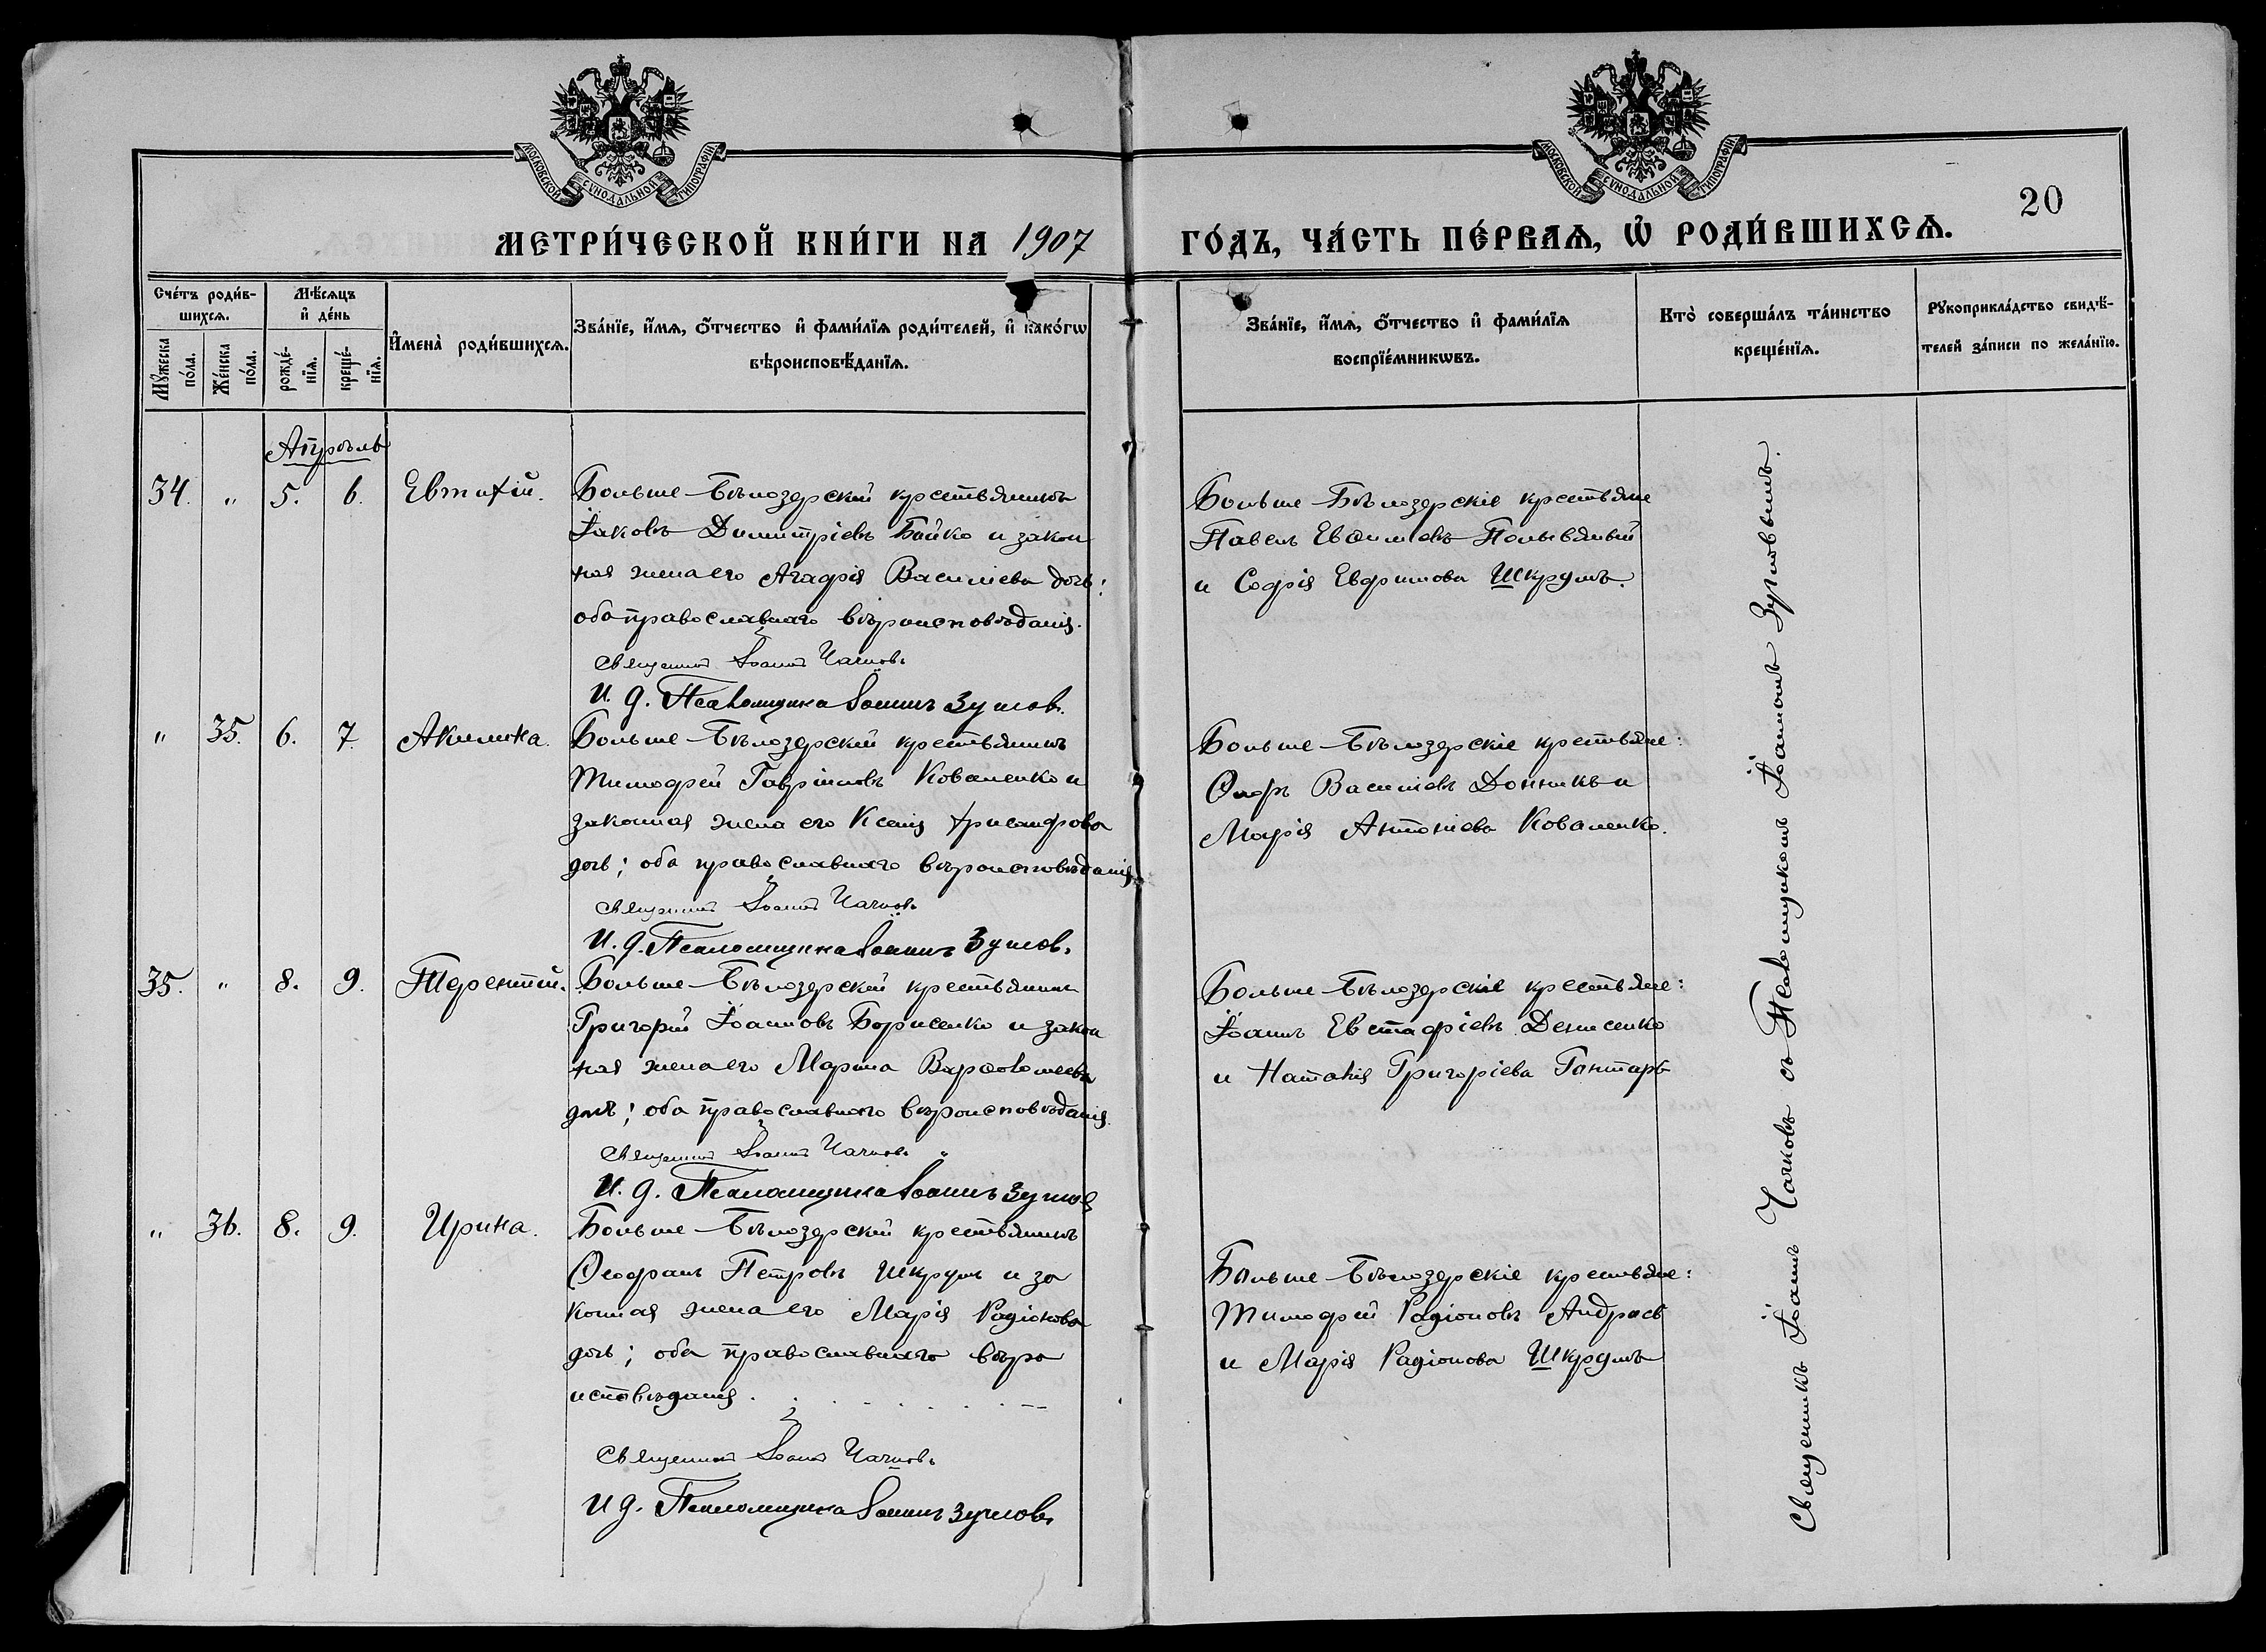 МОСКОВСКОЙ СУНОДАЛЬНОЙ ТИПОГРАФІИ
МОСКОВСКОЙ СУНОДАЛЬНОЙ ТИПОГРАФІИ
20
МЕТРИ́ЧЕСКОЙ КНИ́ГИ НА 1907
ГО́ДЪ, ЧА́СТЬ ПЕ́РВАѦ, Ѽ РОДИ́ВШИХСѦ.
Сче́тъ роди́в-
шихсѧ.
Мѣ́сѧцъ
и҆ де́нь
Мꙋ́жеска
по́ла.
Же́нска
по́ла.
рожде́-
нїѧ.
креще́-
нїѧ.
И҆мена̀ роди́вшихсѧ.
Зва́нїе, и҆́мѧ, ѻ҆́тчество и҆ фами́лїѧ роди́телей, и҆ како́гѡ
вѣроисповѣ́данїѧ.
Зва́нїе, и҆́мѧ, ѻ҆́тчество и҆ фами́лїѧ
воспрїе́мникѡвъ.
Кто̀ соверша́лъ та́инство
креще́нїѧ.
Рꙋкоприкла́дство свидѣ́-
телей за́писи по жела́нїю.
Апрѣль
34. " 5. 6. Евтихій.
Больше-Бѣлозерскій крестьянинъ
Іаковъ Димитріевъ Бойко и закон
ная жена его Агафія Василіева дочь;
оба православнаго вѣроисповѣданія.
Священникъ Іоаннъ Чачковъ
И. д. Псаломщика Іоаннъ Зуиловъ.
Больше-Бѣлозерскіе крестьяне
Павелъ Евѳиміевъ
и Софія Евфимова Шкрумъ.
" 35. 6. 7. Акилина.
Больше-Бѣлозерскій крестьянинъ
Тимофей Гавріиловъ Коваленко и
законная жена его Ксенія Хрисанфова
дочь; оба православнаго вѣроисповѣданія
Священникъ Іоаннъ Чачковъ
И. д. Псаломщика Іоаннъ Зуиловъ.
Больше-Бѣлозерскіе крестьяне:
Василіевъ Донникъ и
Марія Антоніева Коваленко.
35. " 8. 9. Терентій.
Больше-Бѣлозерскій крестьянинъ
Григорій Іоанновъ Борисенко и закон
ная жена его Марина Варѳоломеева
дочь; оба православнаго вѣроисповѣданія
Священникъ Іоаннъ Чачковъ
И. д. Псаломщика Іоаннъ Зуиловъ
Больше-Бѣлозерскіе крестьяне:
Іоаннъ Евстафіевъ Денисенко
и Наталія Григоріева Гонтарь
" 36. 8. 9. Ирина.
Больше-Бѣлозерскій крестьянинъ
Ѳеофанъ Петровъ Шкрумъ и за
конная жена его Марія Радіонова
дочь; оба православнаго вѣро
исповѣданія.
Священникъ Іоаннъ Чачковъ
И д. Псаломщика Іоаннъ Зуиловъ.
Больше-Бѣлозерскіе крестьяне:
Тимофей Радіоновъ
и Марія Радіонова Шкрумъ
Священникъ Іоаннъ Чачковъ съ Псаломщикомъ Іоанномъ Зуиловымъ.